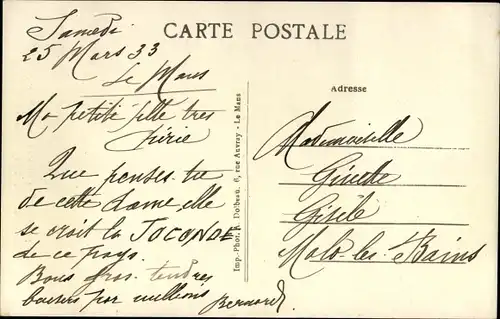 CARTE POSTALE
Samedi
25 Mars 33
Le Mans
Ma petite fille très
chérie
Que penses-tu
de cette dame, elle
se croit la JOCONDE
de ce pays.
Bons gros tendres
baisers par millions
Bernard
Imp.-Phot. R. Dolbeau, 6, rue Auvray - Le Mans
Adresse
Mademoiselle
Ginette
Gisèle
Malo-les-Bains